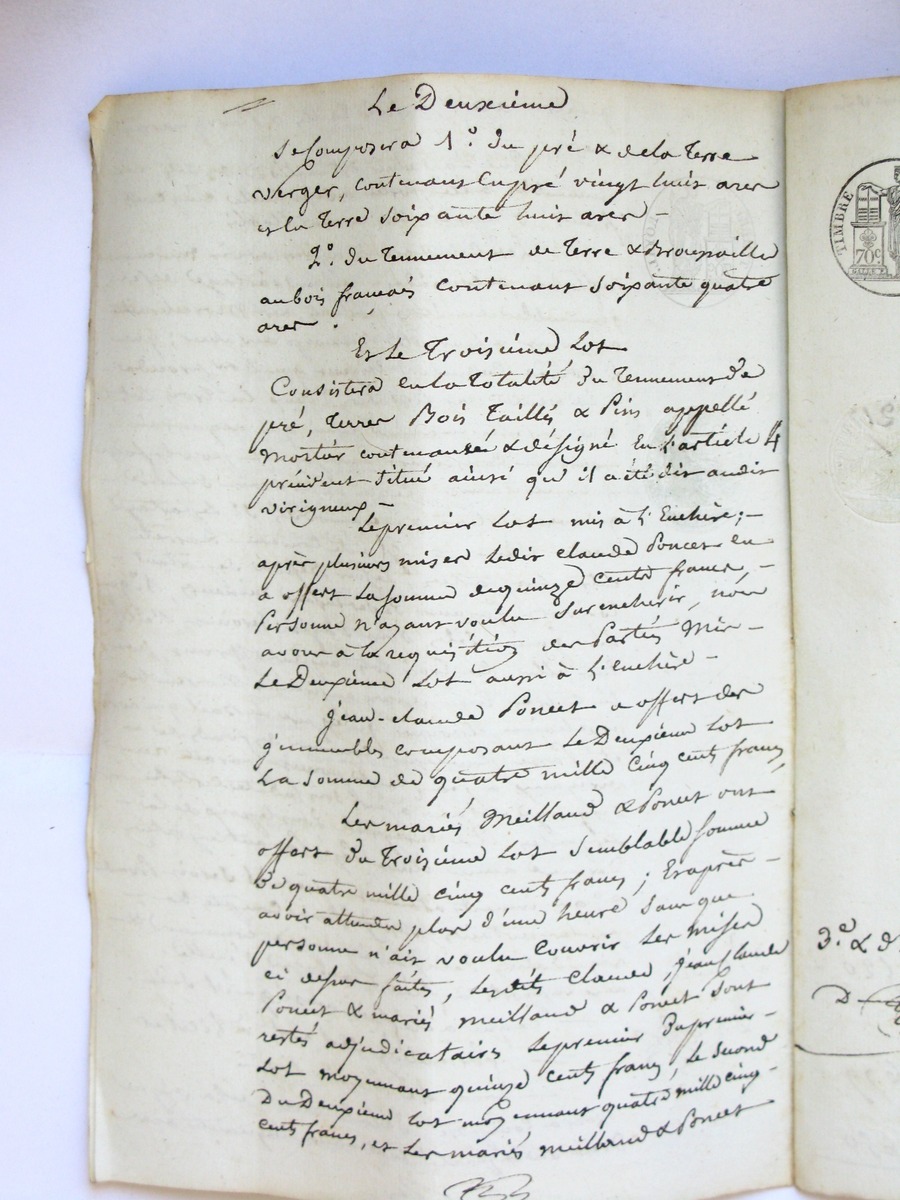 Le Deuxième
Se Composera 1° du pré & de la Terre
verger, contenant le pré vingt huit ares
et la Terre soixante huit ares -
2° du Tennement de Terre & Broussaille
au bois français contenant soixante quatre
ares.
Et Le Troisième Lot
Consistera en la Totalité du Tennement de
pré, terres Bois Taillis & Pins appellé
Mortier contenancé & désigné En l'article 4
précédent situé ainsi qu'il a été dit audit
virigneux -
Le premier Lot mis à l'Enchère; -
après plusieurs mises Ledit Claude Poncet en
a offert La somme de quinze cents francs, -
Personne n'ayant voulu surencherir, nous
avons à la requisition des Parties Mis -
Le Deuxième Lot aussi à l'enchère -
Jean-claude Poncet a offert des
immeubles composant Le Deuxième Lot
La somme de quatre mille cinq cents francs
Les mariés Meilland & Poncet ont
offert du Troisième Lot semblable somme
de quatre mille cinq cents francs; Et après -
avoir attendu plus d'une heure sans que
personne n'ait voulu couvrir Les mises
ci dessus faites, Lesdits Claude, Jean Claude
Poncet & mariés Meilland & Poncet sont
restés adjudicataires Le premier du premier -
Lot moyennant quinze cents francs, Le second
Du Deuxième Lot moyennant quatre mille cinq -
cents francs, et Les mariés Meilland & Poncet
TIMBRE
70c
3° & d
D